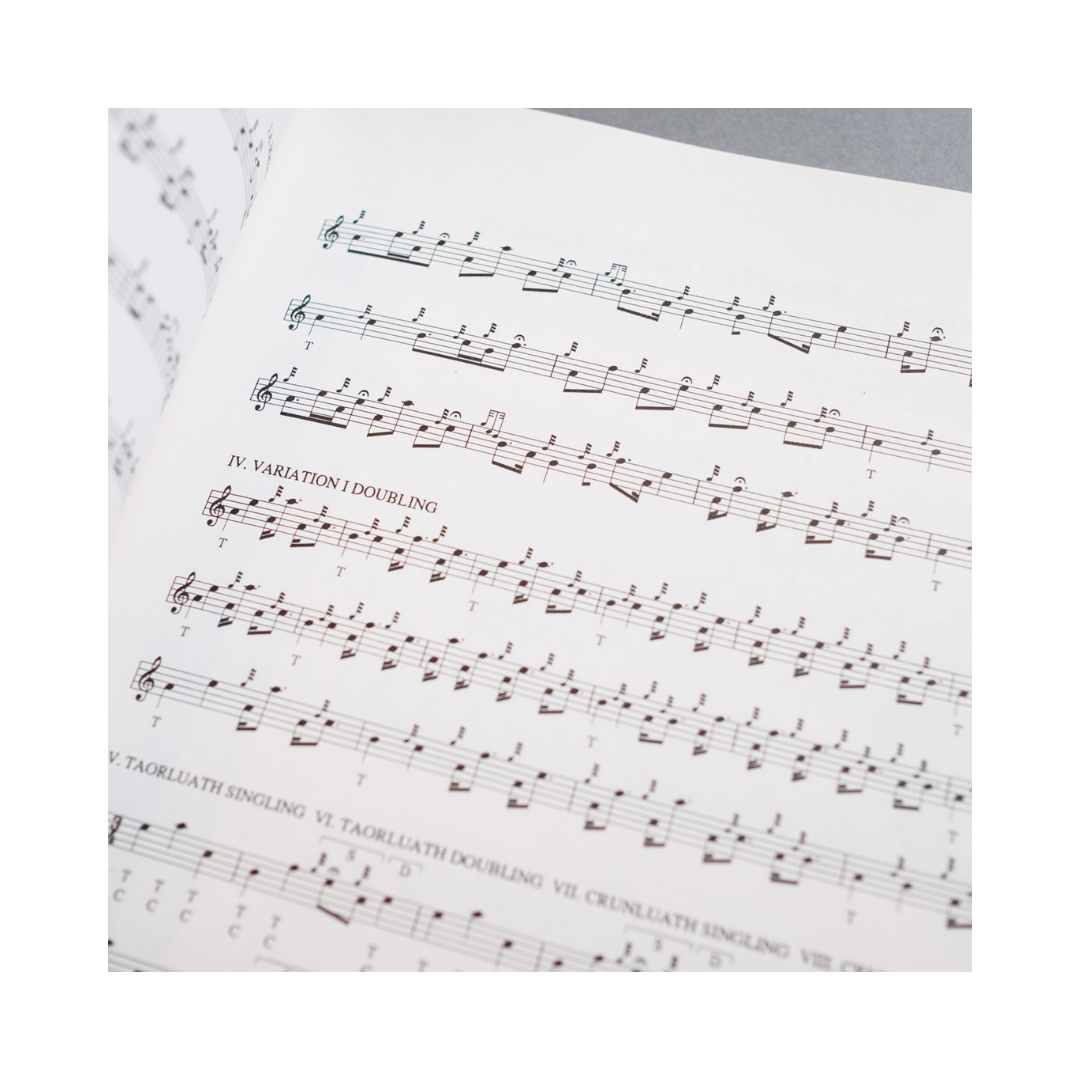 T
T
IV. VARIATION I DOUBLING
T T T T T
T T T T
T T T
V. TAORLUATH SINGLING VI. TAORLUATH DOUBLING VII. CRUNLUATH SINGLING VIII.
S D S D
T T T T T T
C C C C C